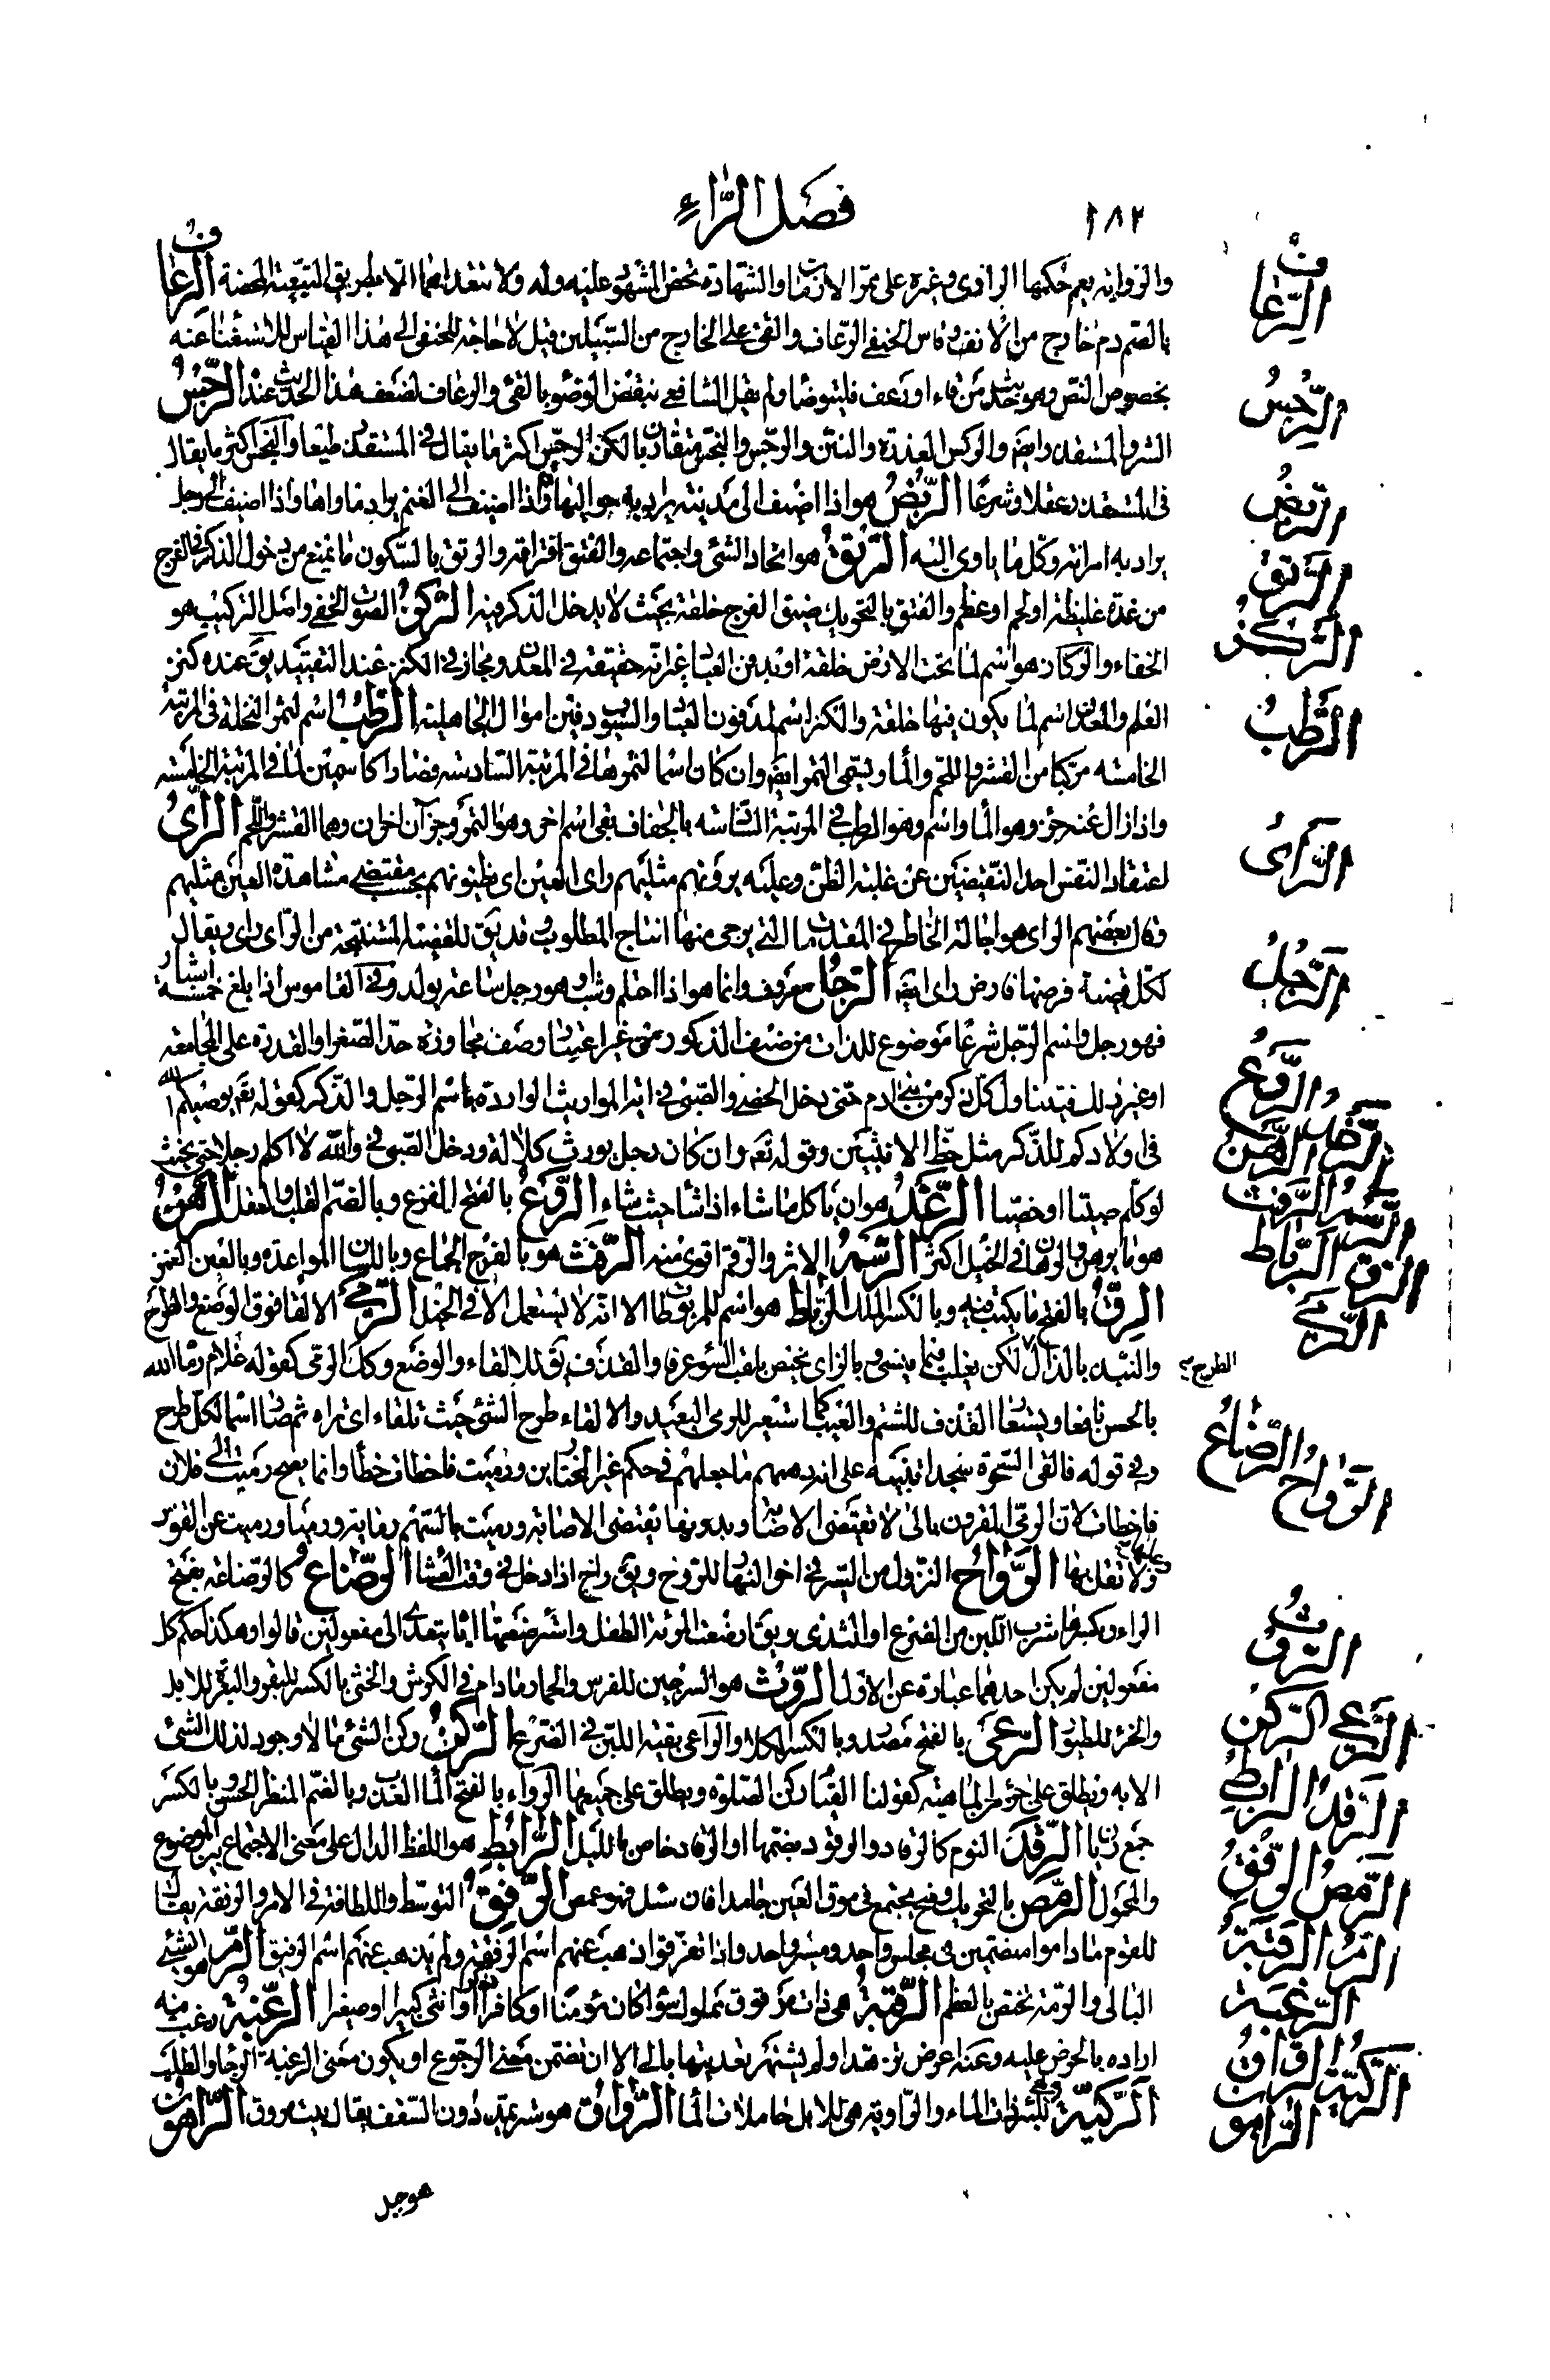 ١٨٢
فصل الراء
والرواية يعم حكمها الراوي وغيره على ممر الازمان والشهادة تخص المشهود عليه وله ولا تتعداهما الا بطريق التبعية المحضة الرعاف
بالضم دم خارج من الانف وقاس الحنفي الرعاف والقئ على الخارج من السبيلين قيل لا حاجة للحنفي الى هذا القياس للاستغناء عنه
بخصوص النص وهو حديث من قاء او رعف فليتوضأ ولم يقل الشافعي بنقض الوضوء بالقئ والرعاف لضعف هذا الحديث عنده الرجس
الشر والمستقذر وايضا والركس العذرة والنتن والرجس والنجس متقاربان لكن الرجس اكثر ما يقال في المستقذر طبعا والنجس اكثر ما يقال
في المستقذر عقلا وشرعا الربض هو اذا اضيف الى مدينة يراد به حواليها واذا اضيف الى الغنم يراد مأواها واذا اضيف الى رجل
يراد به امرأته وكل ما يأوى اليه الرتق هو اتحاد الشئ واجتماعه والفتق افتراقه والرتق بالسكون ما يمنع من دخول الذكر في الفرج
من غدة غليظة او لحم او عظم والفتق بالتحريك ضيق الفرج خلقة بحيث لا يدخل الذكر فيه الركز الصوت الخفي واصل التركيب هو
الخفاء والركاز هو اسم لما تحت الارض خلقة او بدفن العباد غير انه حقيقة في المعدن ومجاز في الكنز عند التقييد يق عنده كنز
العلم والمعدن اسم لما يكون فيها خلقة والكنز اسم لمدفون العباد والسيوب دفين اموال الجاهلية الرطب اسم لثمر النخلة في المرتبة
الخامسة مركبا من القشر واللحم والماء ويسمى التمر ايضا وان كان اسما لثمرها في المرتبة السادسة فصارا كاسمين لما في المرتبة الخامسة
واذا زال عنه جزء وهو الماء واسم وهو الرطب في المرتبة السادسة بالجفاف بقي اسم اخر وهو التمر وجزآن اخران وهما القشر واللحم الرأى
اعتقاد النفس احد النقيضين عن غلبة الظن وعليه يرونهم مثليهم رأى العين اى يظنونهم بحسب مقتضى مشاهدة العين مثليهم
وقال بعضهم الرأى هو اجالة الخاطر في المقدمات التي يرجى منها انتاج المطلوب وقد يق للقضية المستنتجة من الرأى رأى ويقال
لكل قضية فرضها فارض رأى ايضا الرجل معروف وانما هو اذا احتلم وشب او هو رجل ساعة يولد وفي القاموس اذا بلغ خمسة اشبار
فهو رجل واسم الرجل شرعا موضوع للذات من صنف الذكور من غير اعتبار وصف مجاوزة حد الصغر او القدرة على المجامعة
او غير ذلك فيتناول كل ذكر من بني ادم حتى دخل الخصي والصبي في اية المواريث الواردة باسم الرجل والذكر كقوله تع يوصيكم الله
في اولادكم للذكر مثل حظ الانثيين وقوله تع وان كان رجل يورث كلالة ودخل الصبي في والله لا اكلم رجلا حتى يحنث
لو كلم صبيا او خصيا الرغد هو ان يأكل ما شاء اذا شاء حيث شاء الروع بالفتح الفزع وبالضم القلب والعقل الرهن
هو ما يرهن والرهان في الخيل اكثر الرسم الاثر والرقم اقوى منه الرفث هو بالفرج الجماع وباللسان المواعدة وبالعين الغمز
الرق بالفتح ما يكتب فيه وبالكسر الملك الرباط هو اسم للمربوطات الا انه لا يستعمل الا في الخيل الرمي الالقاء فوق الوضع والطرح
والنبذ بالذال لكن يغلب فيما ينسى وبالزاى يختص بلقب السوء عرفا والقذف يق للالقاء والوضع وكذا الرمي كقوله غلام رماه الله
بالحسن يافعا ويستعار القذف للشتم والعيب كما استعير للرمي البعيد والالقاء طرح الشئ حيث تلقاه اى تراه ثم صار اسما لكل طرح
وفي قوله فالقى السحرة سجدا تنبيه على انه دهمهم ما جعلهم في حكم غير المختارين ورميت فاخطأت خطأ وانما يصح رميت الى فلان
فاخطأت لان الرمي المقرون بالى لا يقتضي الاصابة وبدونها يقتضي الاصابة ورميت بالسهم رماية ورميا ورميت عن القوس
وعليها ولا تقل بها الرواح النزول من السير في اخر النهار للتروح ويق راح اذا دخل في وقت العشاء الرضاع كالرضاعة بفتح
الراء وكسرها شرب اللبن من الضرع او الثدي ويق ارضعت المرأة الطفل واسترضعتها اياه يتعدى الى مفعولين قالوا وهكذا حكم كل
مفعولين لم يكن احدهما عبارة عن الاول الروث هو السرجين للفرس والحمار ما دام في الكرش والخثى بالكسر للبقر والبعر للابل
والخرء للطيور الرعى بالفتح مصدر وبالكسر الكلأ والراعي بقية اللبن في الضرع الركن ركن الشئ ما لا وجود لذلك الشئ
الا به ويطلق على جزء من الماهية كقولنا القيام ركن الصلوة ويطلق على جميعها الرواء بالفتح الماء العذب وبالضم المنظر الحسن وبالكسر
جمع ريان الرقد النوم كالرقاد والرقود بضمها او الرقاد خاص بالليل الرابط هو اللفظ الدال على معنى الاجتماع بين الموضوع
والمحمول الرمص بالتحريك وسخ يجتمع في موق العين جامدا فان سال فهو غمص الرفق التوسط واللطافة في الامر والرفقة يقال
للقوم ما داموا منضمين في مجلس واحد ومسير واحد واذا تفرقوا ذهب عنهم اسم الرفقة ولم يذهب عنهم اسم الرفيق الرم هو الشئ
البالي والرمة تختص بالعظم الرقبة هي ذات مرقوق مملوك سواء كان مؤمنا او كافرا ذكرا او انثى كبيرا او صغيرا الرغبة رغب فيه
اراده بالحرص عليه وعنه اعرض تزهدا ولم يشتهر تعديتها بالى الا ان تضمن معنى الرجوع او يكون معنى الرغبة الرجاء والطلب
الركية للبئر ذات الماء والراوية هي للابل حاملات الماء الرواق هو ستر يمد دون السقف يقال بيت مروق الراهون
هو جبل
الرعاف
الرجس
الربض
الرتق
الركز
الرطب
الرأى
الرجل
الروع
الرغد الرهن
الرسم الرفث
الرق الرباط
الرمي
الطرح
الرواح والرضاع
الروث
الرعي الركن
الرقد الرابط
الرمص الرفق
الرم الرقبة
الرغبة
الركية الرواق
الراهون